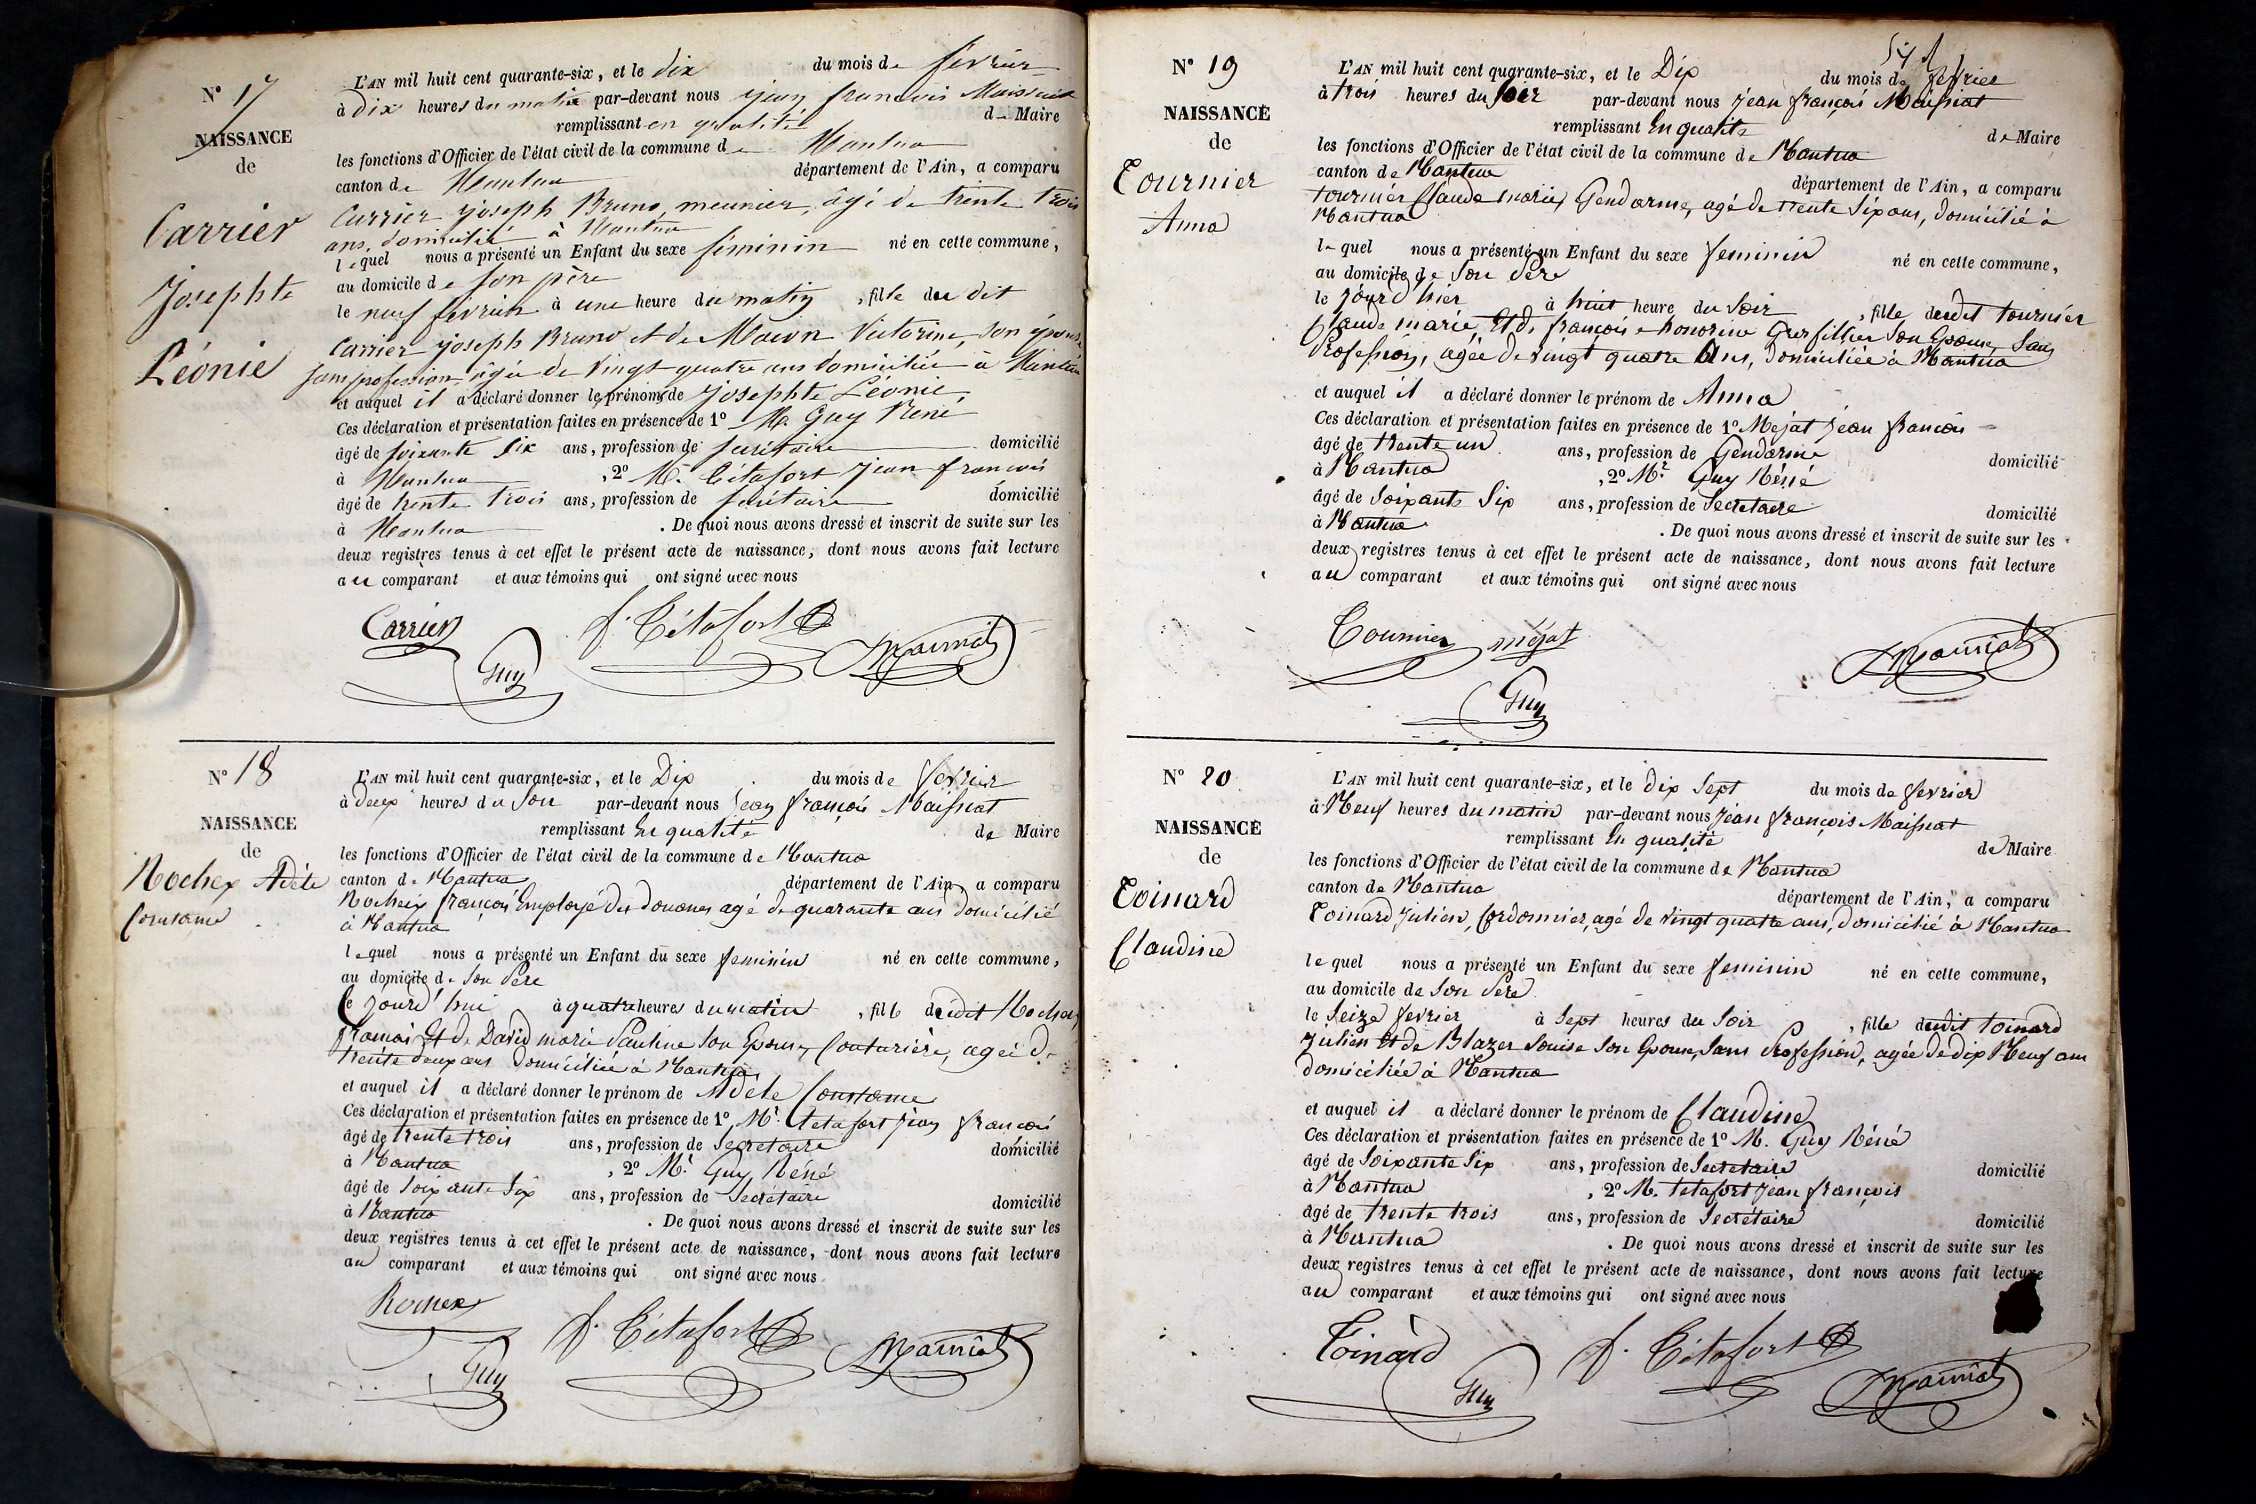 N° 17
NAISSANCE
de
Carrier
Josephte
Léonie
L'AN mil huit cent quarante-six, et le dix du mois de février
à dix heures du matin par-devant nous jean francois Maissiat
remplissant en qualité de Maire
les fonctions d'Officier de l'état civil de la commune de Nantua
canton de Nantua département de l'Ain, a comparu
Carrier joseph Bruno, meunier, âgé de trente trois
ans, domicilié à Nantua
lequel nous a présenté un Enfant du sexe féminin né en cette commune,
au domicile de son père
le neuf février à une heure du matin, fille du dit
Carrier joseph Bruno et de Macon Victorine, son épouse
sans profession, âgée de vingt quatre ans domiciliée à Nantua
et auquel il a déclaré donner le prénom de Josephte Léonie
Ces déclaration et présentation faites en présence de 1° M. Guy René
âgé de soixante six ans, profession de secrétaire domicilié
à Nantua, 2° M. Tétafort jean francois
âgé de trente trois ans, profession de secrétaire domicilié
à Nantua. De quoi nous avons dressé et inscrit de suite sur les
deux registres tenus à cet effet le présent acte de naissance, dont nous avons fait lecture
au comparant et aux témoins qui ont signé avec nous
Carrier f. Tétafort Maissiat
Guy
N° 18
NAISSANCE
de
Rochex Adèle
Constance
L'AN mil huit cent quarante-six, et le Dix du mois de fevrier
à deux heures du Soir par-devant nous Jean françois Maissiat
remplissant En qualité de Maire
les fonctions d'Officier de l'état civil de la commune de Nantua
canton de Nantua département de l'Ain, a comparu
Rochex françois Employé des douanes agé de quarante ans domicilié
à Nantua
lequel nous a présenté un Enfant du sexe feminin né en cette commune,
au domicile de Son Père
le jourd'hui à quatre heures du matin, fille dudit Rochex
françois Et de David marie Pauline Son Epouse, Couturière, agée de
trente deux ans domiciliée à Nantua
et auquel il a déclaré donner le prénom de Adèle Constance
Ces déclaration et présentation faites en présence de 1° Mr. tetafort jean françois
âgé de trente trois ans, profession de Secretaire domicilié
à Nantua, 2° Mr. Guy Réné
âgé de Soixante Six ans, profession de Secrétaire domicilié
à Nantua. De quoi nous avons dressé et inscrit de suite sur les
deux registres tenus à cet effet le présent acte de naissance, dont nous avons fait lecture
au comparant et aux témoins qui ont signé avec nous
Rochex f. Tétafort Maissiat
Guy
N° 19
NAISSANCE
de
Tournier
Anna
L'AN mil huit cent quarante-six, et le Dix du mois de fevrier
à trois heures du Soir par-devant nous jean françois Maissiat
remplissant En qualité de Maire
les fonctions d'Officier de l'état civil de la commune de Nantua
canton de Nantua département de l'Ain, a comparu
tournier Claude marie, Gendarme, agé de trente Six ans, domicilié à
Nantua
lequel nous a présenté un Enfant du sexe feminin né en cette commune,
au domicile de Son Père
le jourd'hier à huit heure du Soir, fille dudit tournier
Claude marie, Et de françoise honorine Son Epouse, Sans
Profession, agée de vingt quatre Ans, domiciliée à Nantua
et auquel il a déclaré donner le prénom de Anna
Ces déclaration et présentation faites en présence de 1° Mejat jean françois
âgé de trente un ans, profession de Gendarme domicilié
à Nantua, 2° Mr. Guy Réné
âgé de Soixante Six ans, profession de Secretaire domicilié
à Nantua. De quoi nous avons dressé et inscrit de suite sur les
deux registres tenus à cet effet le présent acte de naissance, dont nous avons fait lecture
au comparant et aux témoins qui ont signé avec nous
Tournier méjat Maissiat
Guy
N° 20
NAISSANCE
de
Toinard
Claudine
L'AN mil huit cent quarante-six, et le dix Sept du mois de fevrier
à Neuf heures du matin par-devant nous jean françois Maissiat
remplissant En qualité de Maire
les fonctions d'Officier de l'état civil de la commune de Nantua
canton de Nantua département de l'Ain, a comparu
Toinard julien, Cordonnier, agé de vingt quatre ans, domicilié à Nantua
lequel nous a présenté un Enfant du sexe feminin né en cette commune,
au domicile de Son Père
le Seize fevrier à Sept heures du Soir, fille dudit toinard
julien Et de Blazer Louise Son Epouse, Sans Profession, agée de dix Neuf ans
domiciliée à Nantua
et auquel il a déclaré donner le prénom de Claudine
Ces déclaration et présentation faites en présence de 1° M. Guy Réné
âgé de Soixante Six ans, profession de Secretaire domicilié
à Nantua, 2° M. tetafort jean françois
âgé de trente trois ans, profession de Secrétaire domicilié
à Nantua. De quoi nous avons dressé et inscrit de suite sur les
deux registres tenus à cet effet le présent acte de naissance, dont nous avons fait lecture
au comparant et aux témoins qui ont signé avec nous
Toinard f. Tétafort Maissiat
Guy